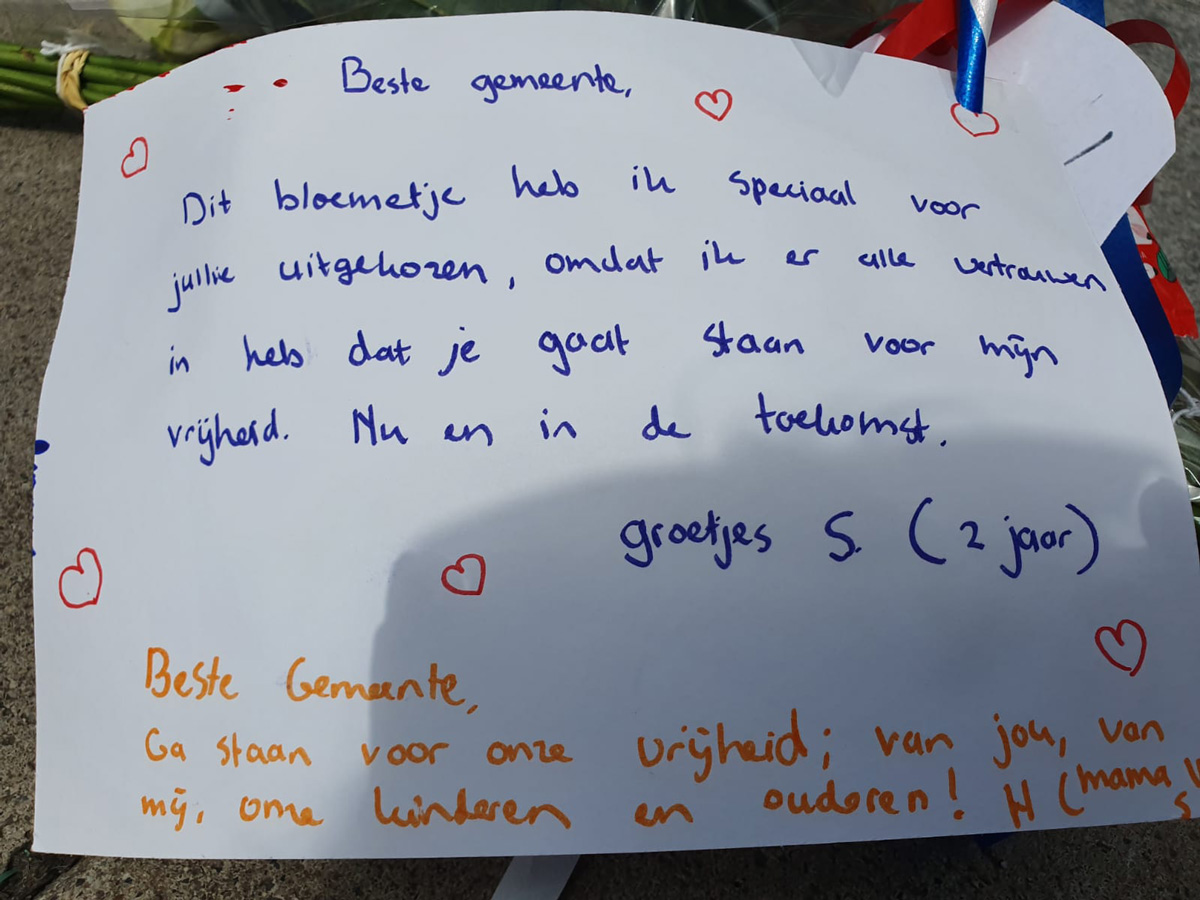 Beste gemeente,
Dit bloemetje heb ik speciaal voor
jullie uitgekozen, omdat ik er alle vertrouwen
in heb dat je gaat staan voor mijn
vrijheid. Nu en in de toekomst.
groetjes S. (2 jaar)
Beste Gemeente,
Ga staan voor onze vrijheid; van jou, van
mij, onze kinderen en ouderen! H (mama
S